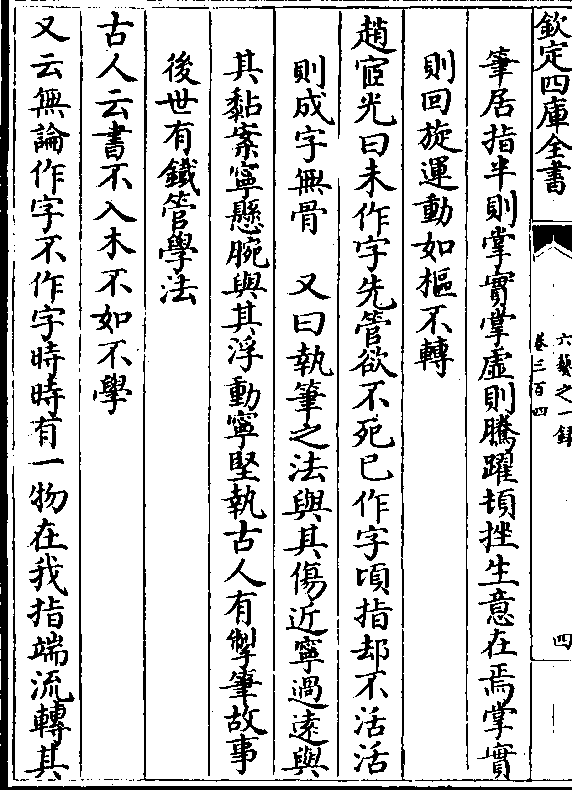 欽定四庫全書
六藝之一錄
卷三百四
四
筆居指半則掌實掌虛則騰躍頓挫生意在焉掌實
則回旋運動如樞不轉
趙宧光曰未作字先管欲不死已作字頃指却不活活
則成字無骨　又曰執筆之法與其傷近寧過遠與
其黏案寧懸腕與其浮動寧堅執古人有掣筆故事
後世有鐵管學法
古人云書不入木不如不學
又云無論作字不作字時時有一物在我指端流轉其